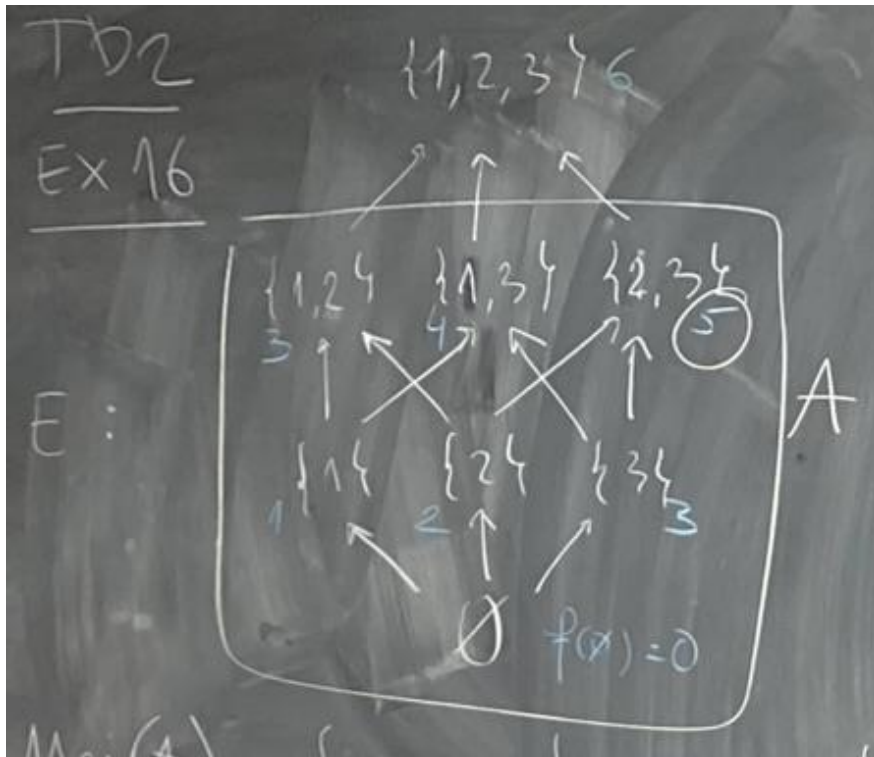 TD2
{1,2,3} 6
Ex 16
{1,2} {1,3} {2,3}
3 4 5
E : A
{1} {2} {3}
1 2 3
∅ f(∅) = 0